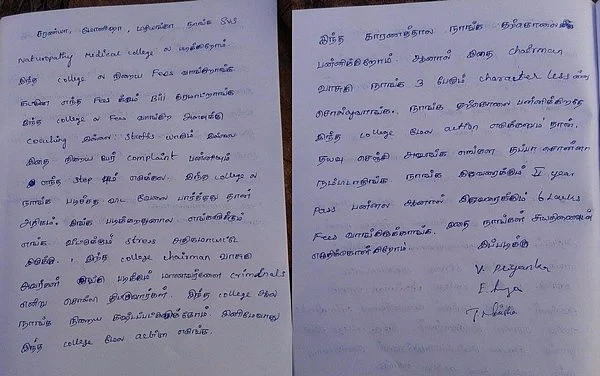 சரண்யா, மோனிஷா, பிரியங்கா நாங்க SVS
Naturopathy Medical college ல படிக்கிறோம்.
இந்த college ல நிறைய Fees வாங்கிறாங்க
எந்த Fees க்கும் Bill தரமாட்றாங்க
இந்த college ல Fees வாங்கிற அளவுக்கு
coaching இல்லை staffs யாரும் இல்லை
இதை நிறைய பேர் complaint பண்ணியும்
எந்த step ம் எடுக்கல. இந்த college ல
நாங்க படிச்சத விட வேலை பார்த்தது தான்
அதிகம். இங்க படிக்கிறதுனால எங்களுக்கும்
எங்க வீட்டுக்கும் stress அதிகமாயிட்டே
இருக்கு. இந்த college chairman வாசுகி
அவர்கள் இங்கு படிக்கும் மாணவர்களை criminals
என்று சொல்லி திட்டுவார்கள். இந்த college ல
நாங்க நிறைய கஷ்டப்பட்டுக்கோம். இனிமேலாவது
இந்த college மேல action எடுங்க.
இந்த காரணத்தால நாங்க தற்கொலை
பண்ணிக்கிறோம். ஆனால் இதை chairman
வாசுகி நாங்க 3 பேரும் characterless னு
சொல்லுவாங்க. நாங்க தற்கொலை பண்ணிக்கிறதே
இந்த college மேல action எடுக்கணும் தான்.
தயவு செஞ்சி அவங்க எங்கள தப்பா சொன்னா
நம்பாதிங்க நாங்க இதுவரைக்கும் II year
Pass பண்ணல ஆனால் இதுவரைக்கும் 6 Lakhs
Fees வாங்கிருக்காங்க. இதை நாங்கள் சுயநினைவுடன்
எழுதிக்கொள்கிறோம்.
இப்படிக்கு
V. Priyanka